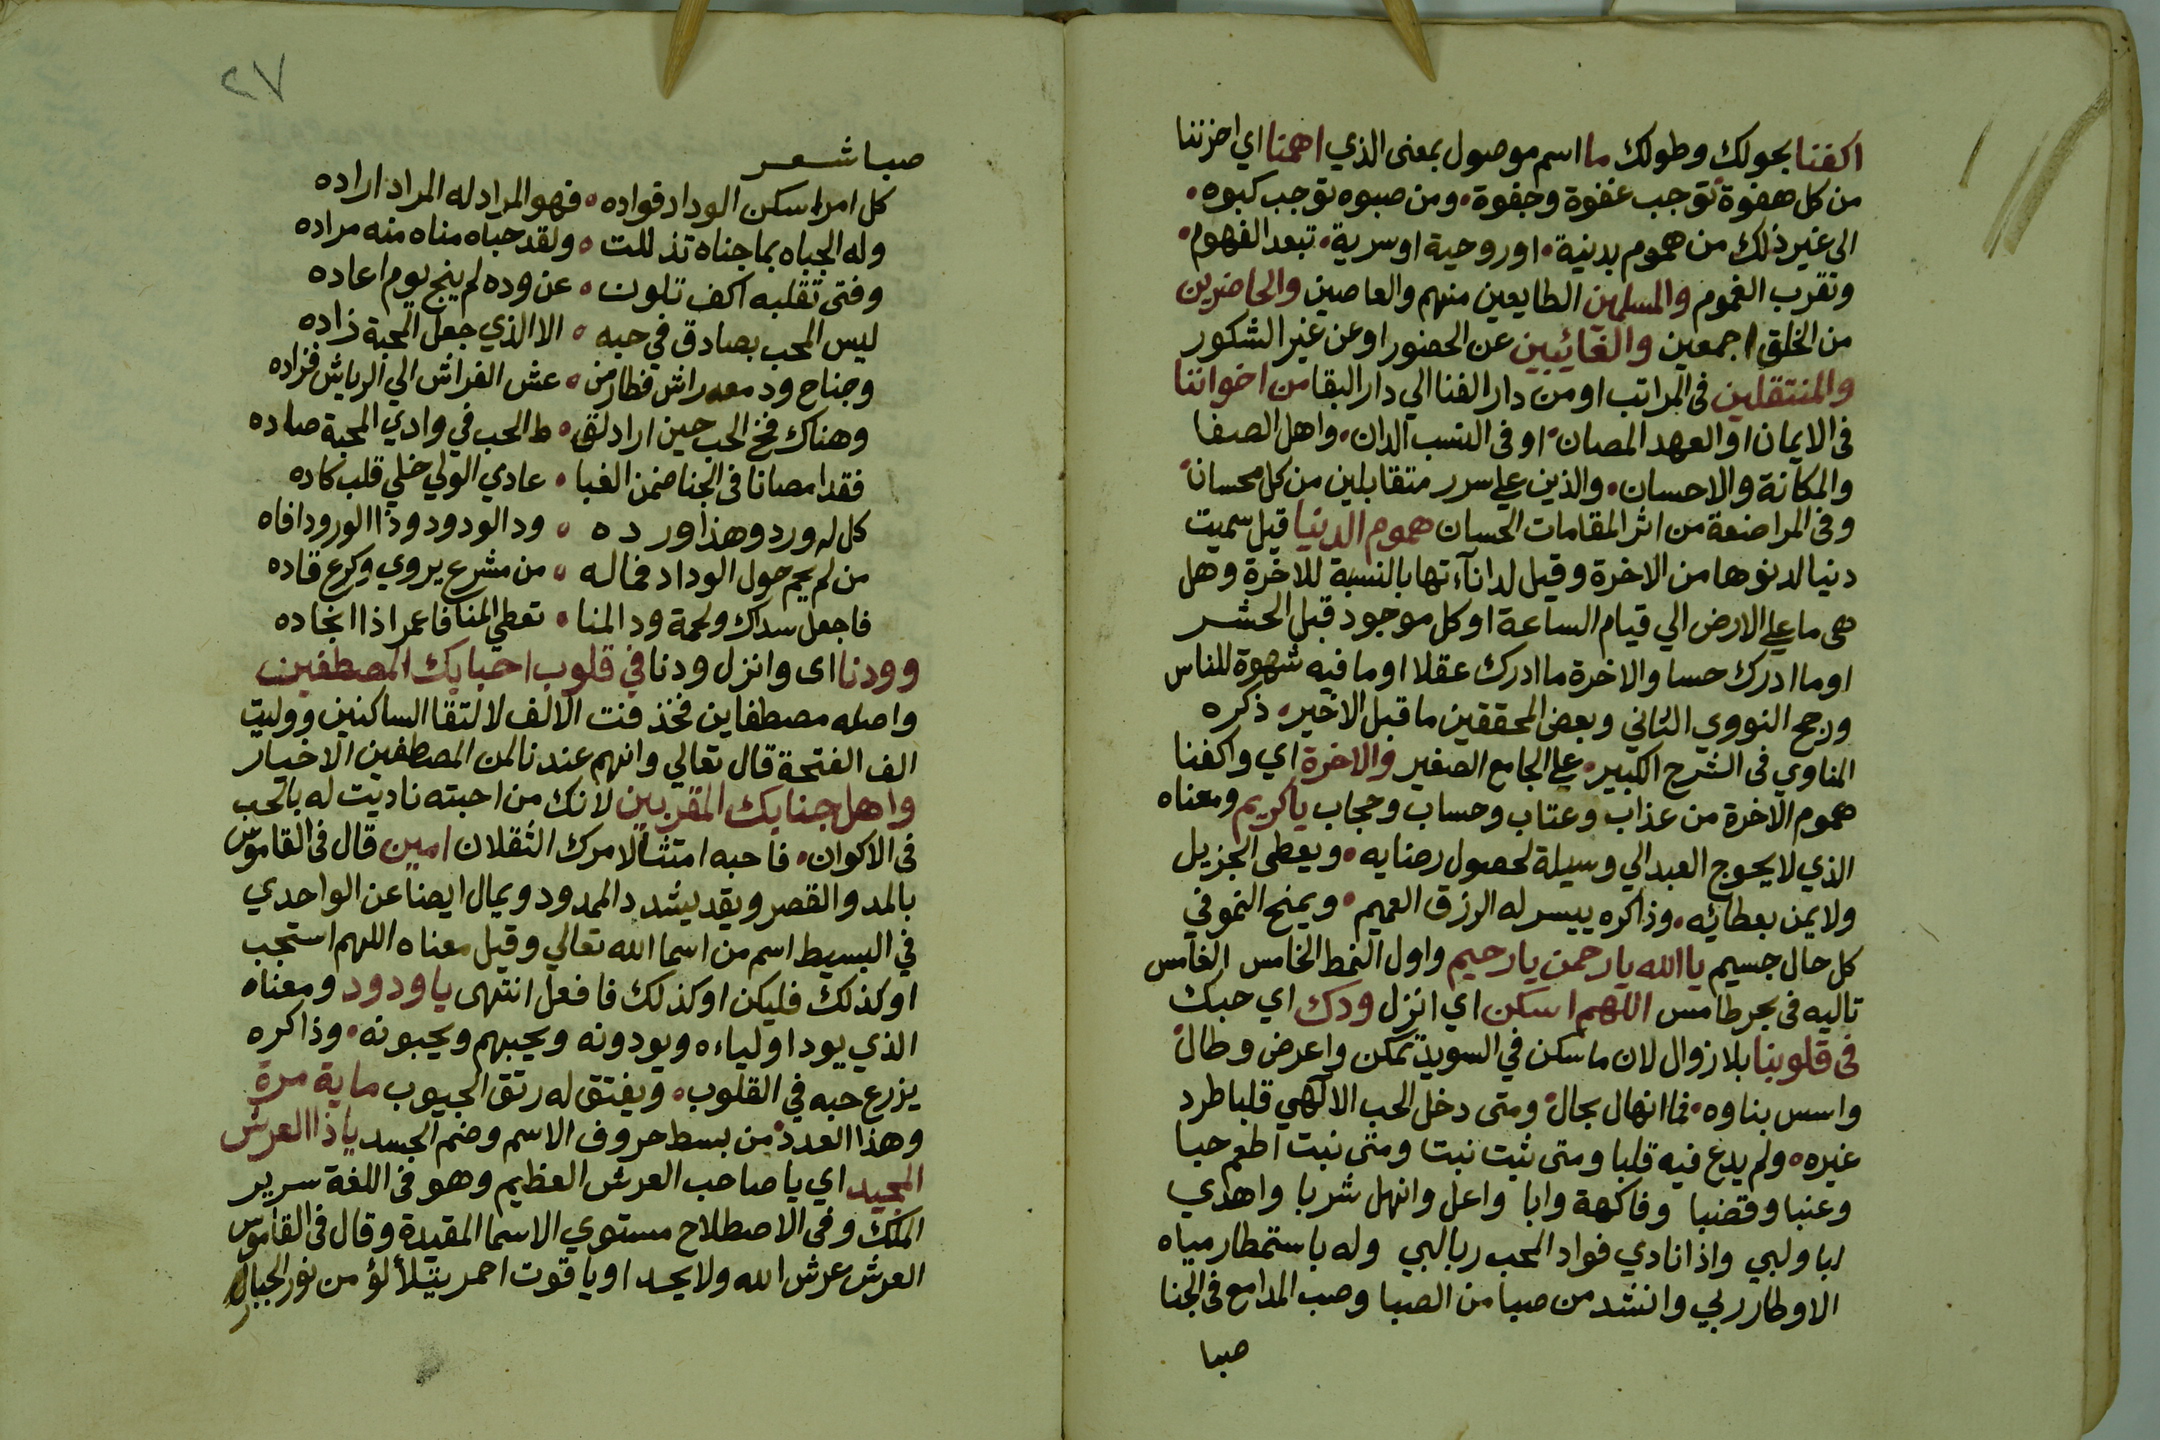 اكفنا بحولك وطولك ما اسم موصول بمعنى الذي اهمنا اي احزننا
من كل هفوة توجب غفوة وجفوة ومن صبوه توجب كبوه
الى غير ذلك من هموم بدنية اوروحية اوسرية تبعد الفهوم
وتقرب الغموم والمسلمين الطايعين منهم والعاصين والحاضرين
من الخلق اجمعين والغائيبين عن الحضور اوعن غير الشكور
والمنتقلين فى المراتب اومن دار الفنا الي دار البقا من اخواننا
فى الايمان اوالعهد المصان اوفى النسب الدان واهل الصفا
والمكانة والاحسان والذين علي سرر متقابلين من كل محسان
وفى المراضعة من اثر المقامات الحسان هموم الدنيا قيل سميت
دنيا لدنوها من الاخرة وقيل لدناآءتها بالنسبة للاخرة وهل
هى ما علي الارض الي قيام الساعة اوكل موجود قبل الحشر
اوما ادرك حسا والاخرة ما ادرك عقلا اوما فيه شهوة للناس
ورجح النووي الثاني وبعض المحققين ما قبل الاخير ذكره
المناوي فى الشرح الكبير علي الجامع الصغير والاخرة اي واكفنا
هموم الاخرة من عذاب وعتاب وحساب وحجاب ياكريم ومعناه
الذي لا يحوج العبد الي وسيلة لحصول رضايه ويعطى الجزيل
ولا يمن بعطائه وذاكره ييسر له الرزق العميم ويمنح النمو في
كل حال جسيم يا الله يا رحمن يا رحيم واول النمط الخامس الغامس
تاليه فى بحر طامس اللهم اسكن اي انزل ودك اي حبك
فى قلوبنا بلا زوال لان ما سكن في السويد تمكن واعرض وطال
واسس بناوه فما انهال بحال ومتى دخل الحب الالهي قلبا طرد
غيره ولم يدع فيه قلبا ومتى ثبت نبتا ومتى نبت اطعم حبا
وعنبا وقضبا وفاكهة وابا واعل وانهل شربا واهدي
لبا ولبي واذا نادي فواد المحب ربا لبي وله باستمطار مياه
الاوطار ربي وانشد من صبا من الصبا وصب المدامع فى الجنا
صبا
٢٧
صبا شعر
كل امرا سكن الوداد فواده فهو المراد له المراد اراده
وله الجباه بما جناه تذللت ولقد حباه مناه منه مراده
وفتى تقلبه اكف تلون عن وده لم ينج يوم اعاده
ليس المحب بصادق في حبه الا الذي جعل المحبة زاده
وجناح ود معه راش فطار من عش الفراش الي الرياش فزاده
وهناك فخ الحب حين اراد لقـ ـط الحب في وادي المحبة صاده
فقدا مصانا فى الجنا ضمن الغبا عادي الولي خلي قلب كاده
كل له ورد وهذا ورده ود الودود وذا الورود افاه
من لم يحم حول الوداد فما له من مشرع يروي وكرع قاده
فاجعل سداك ولحمة ود المنا تعطي المنا فاعمر اذا انجاده
وودنا اى وانزل ودنا في قلوب احبابك المصطفين
واصله مصطفاين فخذفنت الالف لالتقا الساكنين ووليت
الف الفتحة قال تعالي وانهم عندنا لمن المصطفين الاخيار
واهل جنابك المقربين لانك من احببته ناديت له باتحب
فى الاكوان فاحبه امتثالا لامرك الثقلان امين قال فى القاموس
بالمد والقصر وبقد يشدد الممدود ويمال ايضا عن الواحدي
في البسيط اسم من اسما الله تعالي وقيل معناه اللهم استجب
اوكذلك فليكن اوكذلك فافعل انتهى يا ودود ومعناه
الذي يود اولياءه ويودونه ويحبهم ويحبونه وذاكره
يزرع حبه في القلوب ويفتق له رتق الجيوب ماية مرة
وهذا العدد من بسط حروف الاسم وضم الجسد يا ذا العرش
المجيد اي يا صاحب العرش العظيم وهو فى اللغة سرير
الملك وفى الاصطلاح مستوي الاسما المقيدة وقال فى القاموس
العرش عرش الله ولا يحد او ياقوت احمر يتلألؤ من نور الجبار